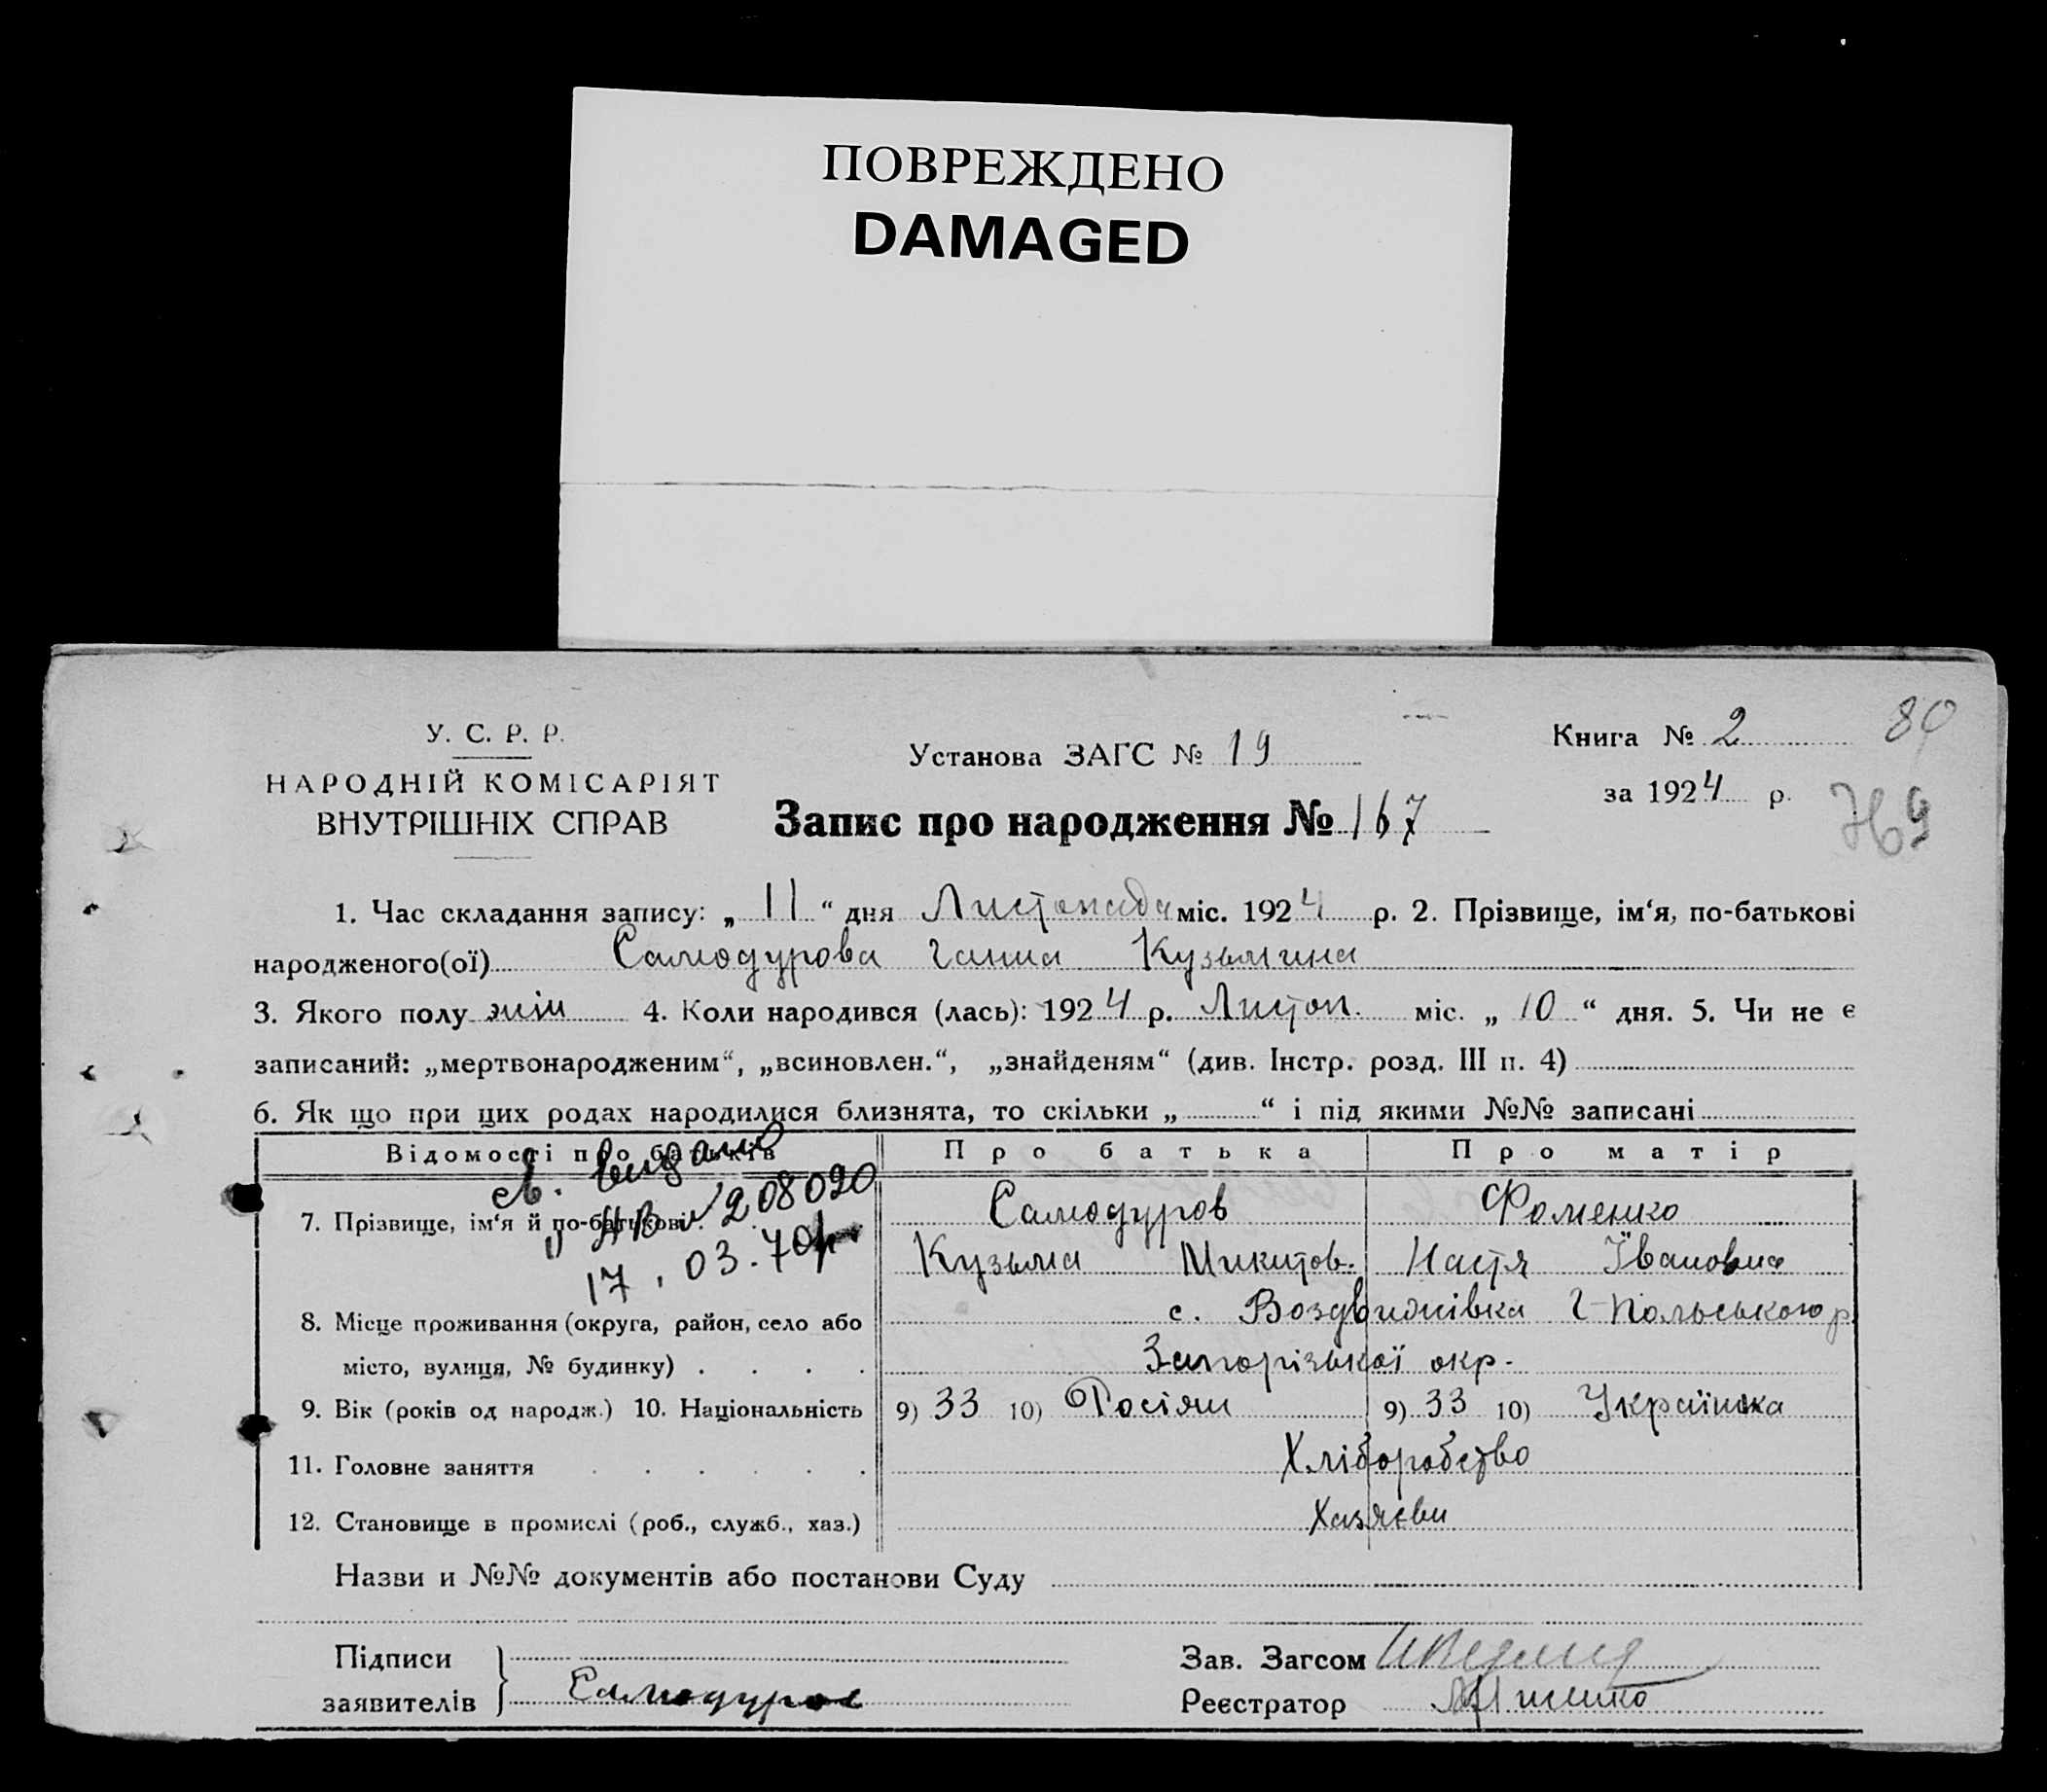 ПОВРЕЖДЕНО
DAMAGED
У. С. Р. Р.
НАРОДНІЙ КОМІСАРІЯТ
ВНУТРІШНІХ СПРАВ
Установа ЗАГС № 19
Книга № 2
80
за 1924 р.
Запис про народження № 167
1. Час складання запису: „ 11 “ дня Листопада міс. 1924 р. 2. Прізвище, ім‘я, по-батькові
народженого(ої) Самодурова Ганна Кузьмина
3. Якого полу жін 4. Коли народився (лась): 1924 р. Листоп. міс. „ 10 “ дня. 5. Чи не є
записаний: „мертвонародженим“, „всиновлен.“, „знайденям“ (див. Інстр. розд. III п. 4)
6. Як що при цих родах народилися близнята, то скільки „ “ і під якими №№ записані
Відомості про батьків Про батька Про матір
св. видано
АВ № 208020
17.03.70р
7. Прізвище, ім‘я й по-батькові Самодуров Фоменко
Кузьма Микитов. Настя Івановна
8. Місце проживання (округа, район, село або с. Воздвижівка Г-Польського р
місто, вулиця, № будинку) Запорізької окр.
9. Вік (років од народж.) 10. Національність 9) 33 10) Росіян 9) 33 10) Українка
11. Головне заняття Хліборобство
12. Становище в промислі (роб., служб., хаз.) Хазяєви
Назви и №№ документів або постанови Суду
Підписи
заявителів Самодуров
Зав. Загсом
Реєстратор